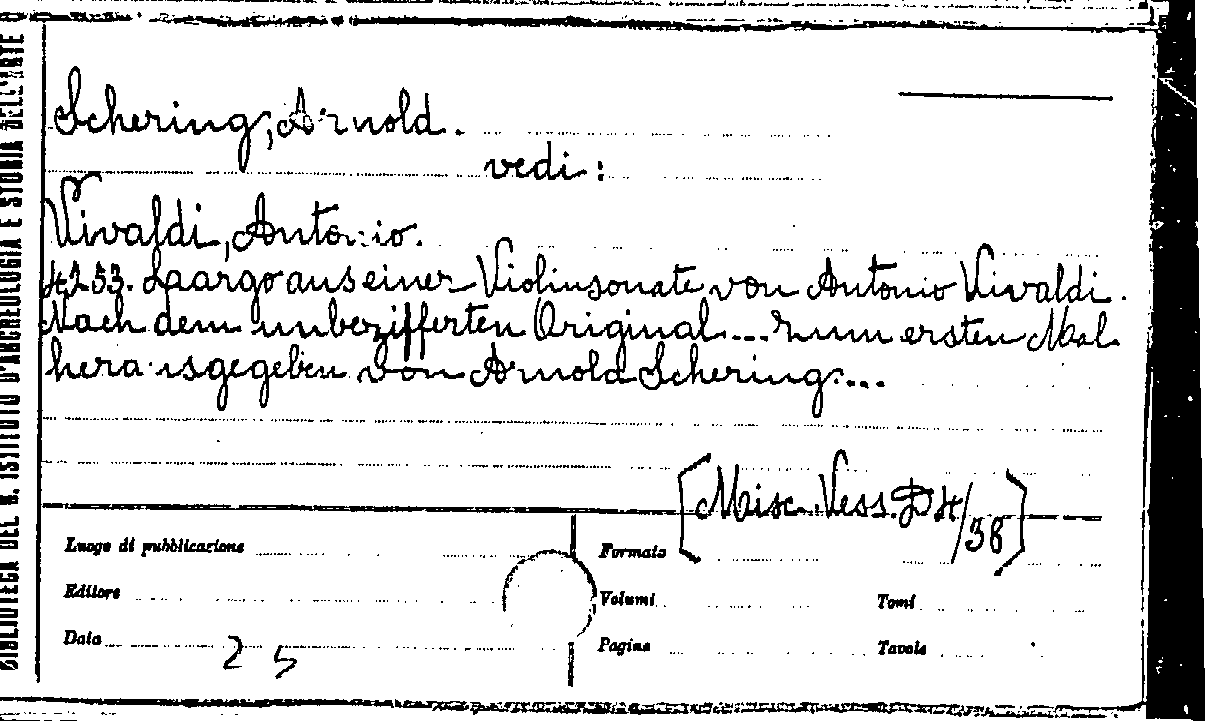 BIBLIOTECA DEL R. ISTITUTO D'ARCHEOLOGIA E STORIA DELL'ARTE
Schering, Arnold.
vedi:
Vivaldi, Antonio.
Laargo aus einer Violinsonate von Antonio Vivaldi.
Nach dem unbezifferten Original... zum ersten Mal
herausgegeben von Arnold Schering...
[Misc. Vess. D 4/38]
Luogo di pubblicazione Formato
Editore Volumi Tomi
Data 25 Pagine Tavole